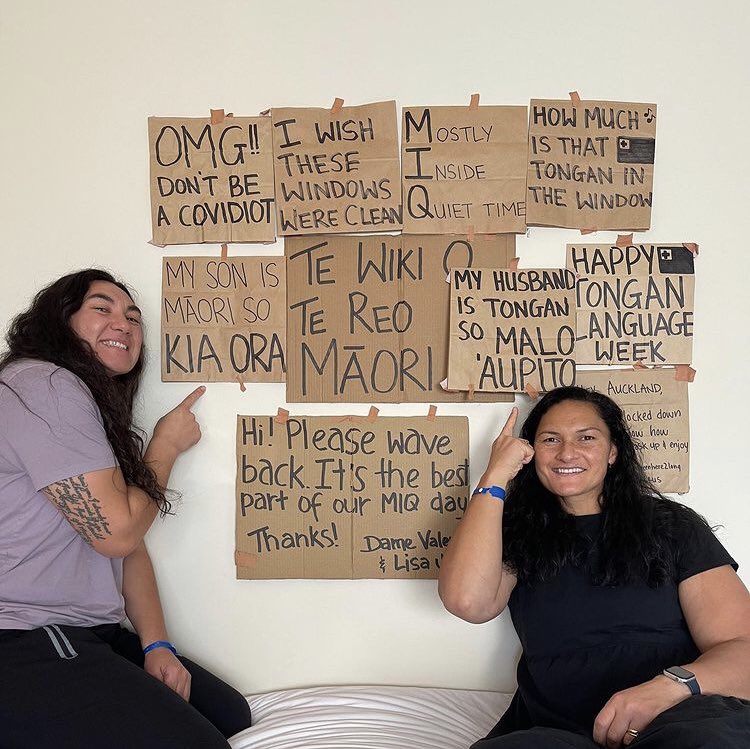 OMG!!
DON'T BE
A COVIDIOT
I WISH
THESE
WINDOWS
WERE CLEAN
MOSTLY
INSIDE
QUIET TIME
HOW MUCH
IS THAT
TONGAN IN
THE WINDOW
MY SON IS
MĀORI SO
KIA ORA
TE WIKI O
TE REO
MĀORI
MY HUSBAND
IS TONGAN
SO MALO
'AUPITO
HAPPY
TONGAN
LANGUAGE
WEEK
AUCKLAND,
locked down
how
& enjoy
Hi! Please wave
back. It's the best
part of our MIQ day
Thanks!
Dame
& Lisa